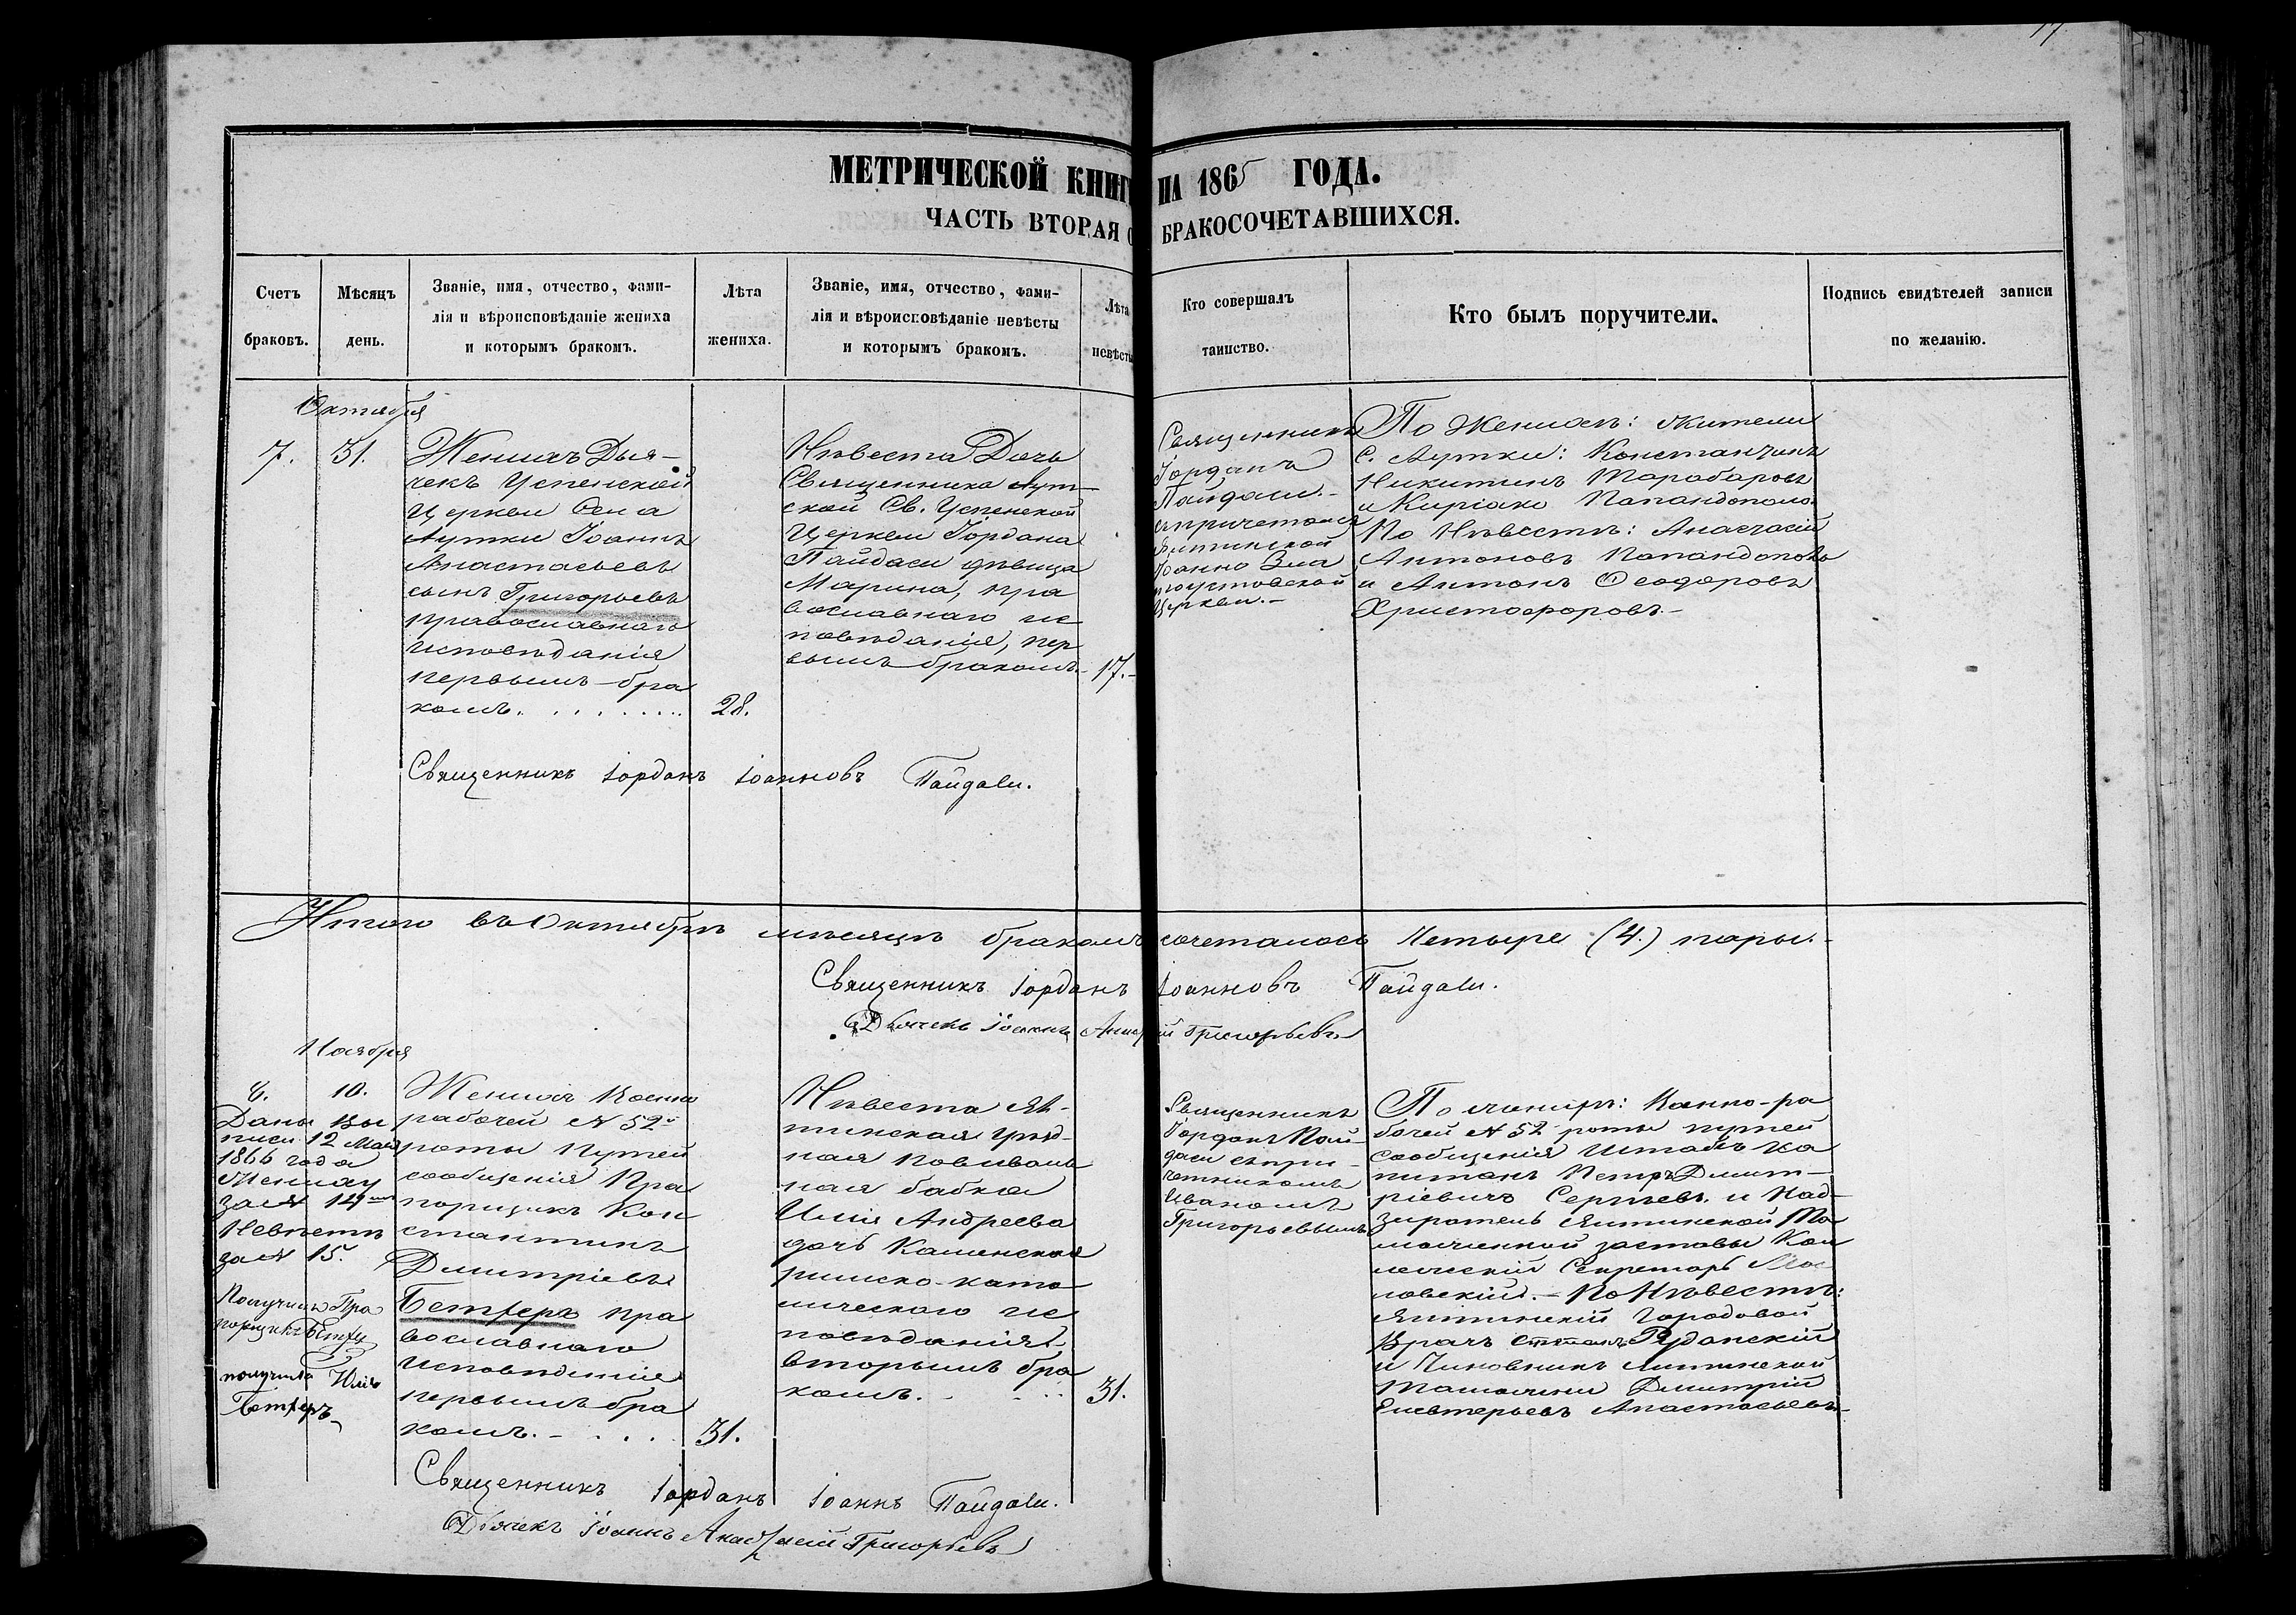 17
МЕТРИЧЕСКОЙ КНИГ НА 1865 ГОДА.
ЧАСТЬ ВТОРАЯ О БРАКОСОЧЕТАВШИХСЯ.
Счетъ
браковъ.
Мѣсяцъ
день.
Званіе, имя, отчество, фами-
лія и вѣроисповѣданіе жениха
и которымъ бракомъ.
Лѣта
жениха.
Званіе, имя, отчество, фами-
лія и вѣроисповѣданіе невѣсты
и которымъ бракомъ.
Лѣта
невѣсты
Кто совершалъ
таинство.
Кто былъ поручители.
Подпись свидѣтелей записи
по желанію.
Октября
7. 31.
Женихъ Дья-
чекъ Успенской
Церкви Села
Аутки Іоаннъ
Анастасьевъ
сынъ Григорьевъ
православнаго
исповѣданія
первымъ бра
комъ.
28.
Невѣста Дочь
Священника Аут-
ской Св. Успенской
Церкви Іордана
Пайдаси дѣвица
Марина, пра
вославнаго ис
повѣданія, пер
вымъ бракомъ.
17.
Священникъ
Іорданъ
Пайдаси.-
съ причетомъ
Ялтинской
Іоанно Зла
тоустовской
Церкви.-
По Женихѣ: Жители
С. Аутки: Константинъ
Никитинъ Тарабаровъ
и Киріако Попандополо.
По Невѣстѣ: Анастасій
Антоновъ Попандополо
и Антонъ Ѳеодоровъ
Христофоровъ.-
Священникъ Іорданъ Іоанновъ Пайдаси.
Итого въ Октябрѣ мѣсяцѣ бракомъ сочеталось Четыре (4.) пары.-
Священникъ Іорданъ Іоанновъ Пайдаси.
Дьячекъ Іоаннъ Григорьевъ
Ноября
8. 10.
Даны Вы
писи 12 Мая
1866 года
Жениху
за № 14
Невѣстѣ
за № 15.
Получилъ Пра
порщикъ
получила Юлія
Бетхеръ
Женихъ Военно
рабочей № 52й
роты Путей
сообщенія Пра
порщикъ Кон
стантинъ
Дмитріевъ
Бетхеръ пра
вославнаго
исповѣданія
первымъ бра
комъ.-
31.
Невѣста Ял-
тинская уѣзд-
ная повиваль
ная бабка
Юлія Андреева
дочь Каменская
римско-като
лическаго ис
повѣданія
вторымъ бра
комъ.
31.
Священникъ
Іорданъ Пай-
даси съ при-
четникомъ
Иваномъ
Григорьевымъ
По женихѣ: Военно-ра
бочей № 52 роты путей
сообщенія Штабсъ Ка
питанъ Петръ Дмит-
ріевичъ Сергѣевъ и Над-
зиратель Ялтинской Та
моженной заставы Кол
лежскій Секретарь
По Невѣстѣ:
Ялтинскій Городовой
Врачъ Степанъ Руданскій
и Чиновникъ Ялтинской
Таможни Дмитрій
Елевтерьевъ Анастасьевъ.-
Священникъ Іорданъ Іоаннъ Пайдаси.
Дьячекъ Іоаннъ Анастасій Григорьевъ